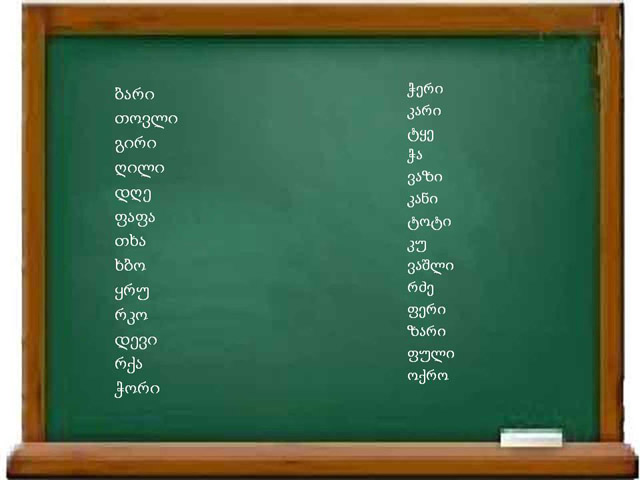 ბარი
თოვლი
გირი
ღილი
დღე
ფაფა
თხა
ხბო
ყრუ
რკო
დევი
რქა
ჭორი
ჭერი
კარი
ტყე
ჭა
ვაზი
კანი
ტოტი
კუ
ვაშლი
რძე
ფერი
ზარი
ფული
ოქრო